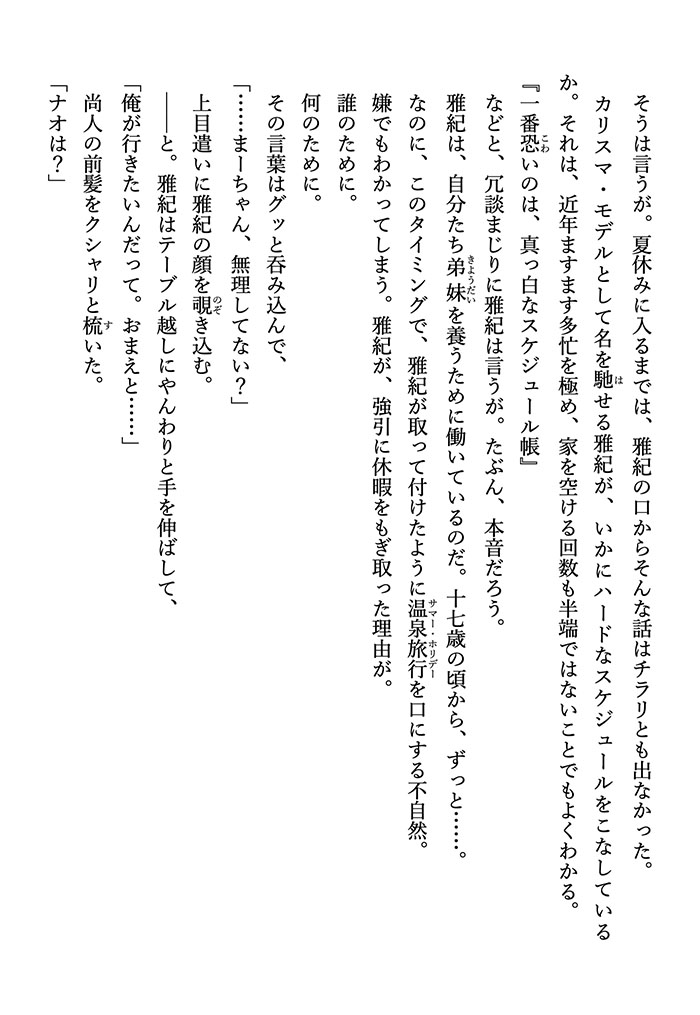 そうは言うが。夏休みに入るまでは、雅紀の口からそんな話はチラリとも出なかった。
カリスマ・モデルとして名を馳せる雅紀が、いかにハードなスケジュールをこなしている
か。それは、近年ますます多忙を極め、家を空ける回数も半端ではないことでもよくわかる。
『一番恐いのは、真っ白なスケジュール帳』
などと、冗談まじりに雅紀は言うが。たぶん、本音だろう。
雅紀は、自分たち弟妹を養うために働いているのだ。十七歳の頃から、ずっと……。
なのに、このタイミングで、雅紀が取って付けたように温泉旅行を口にする不自然。
嫌でもわかってしまう。雅紀が、強引に休暇をもぎ取った理由が。
誰のために。
何のために。
その言葉はグッと呑み込んで、
「……まーちゃん、無理してない？」
上目遣いに雅紀の顔を覗き込む。
――と。雅紀はテーブル越しにやんわりと手を伸ばして、
「俺が行きたいんだって。おまえと……」
尚人の前髪をクシャリと梳いた。
「ナオは？」
は
こわ
きょうだい
サマー・ホリデー
のぞ
す